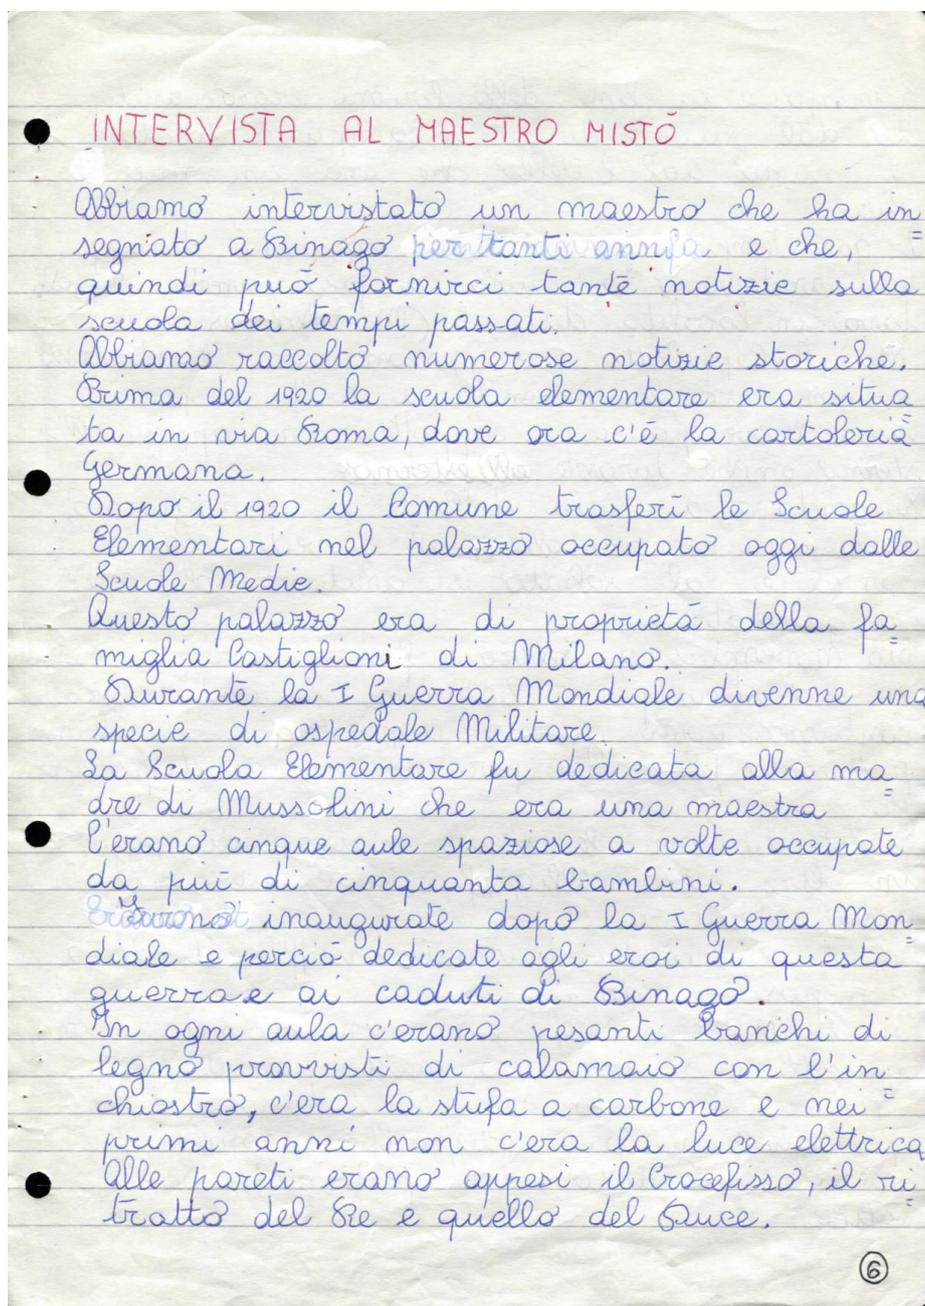 INTERVISTA AL MAESTRO MISTÒ
Abbiamo intervistato un maestro che ha in=
segnato a Binago per tanti anni e che,
quindi può fornirci tante notizie sulla
scuola dei tempi passati.
Abbiamo raccolto numerose notizie storiche.
Prima del 1920 la scuola elementare era situa=
ta in via Roma, dove ora c'è la cartoleria
Germana.
Dopo il 1920 il Comune trasferì le Scuole
Elementari nel palazzo occupato oggi dalle
Scuole Medie.
Questo palazzo era di proprietà della fa=
miglia Castiglioni di Milano.
Durante la I Guerra Mondiale divenne una
specie di ospedale Militare.
La Scuola Elementare fu dedicata alla ma=
dre di Mussolini che era una maestra
C'erano cinque aule spaziose a volte occupate
da più di cinquanta bambini.
inaugurate dopo la I Guerra Mon=
diale e perciò dedicate agli eroi di questa
guerra e ai caduti di Binago.
In ogni aula c'erano pesanti banchi di
legno provvisti di calamaio con l'in=
chiostro, c'era la stufa a carbone e nei
primi anni non c'era la luce elettrica
Alle pareti erano appesi il Crocefisso, il ri=
tratto del Re e quello del Duce.
6